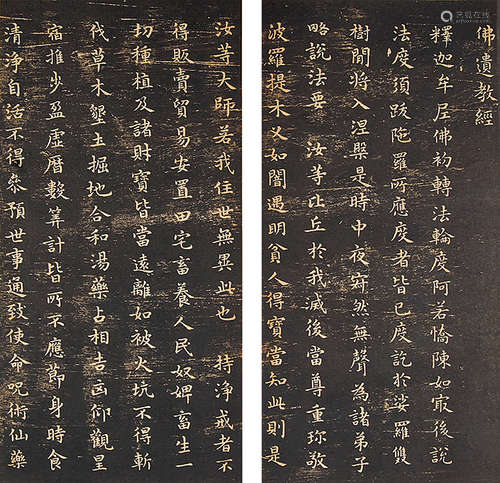 佛遺教經
釋迦牟尼佛初轉法輪度阿若憍陳如寂後說
法度須跋陁羅所應度者皆已度訖於娑羅雙
樹閒將入涅槃是時中夜寂然無聲為諸弟子
略說法要 汝等比丘於我滅後當尊重珎敬
波羅提木叉如闇遇明貧人得寶當知此則是
汝等大師若我住世無異此也 持淨戒者不
得販賣貿易安置田宅畜養人民奴婢畜生一
切種植及諸財寶皆當遠離如被火坑不得斬
伐草木墾土掘地合和湯藥占相吉凶仰觀星
宿推步盈虛曆數筭計皆所不應節身時食
清淨自活不得叅預世事通致使命呪術仙藥